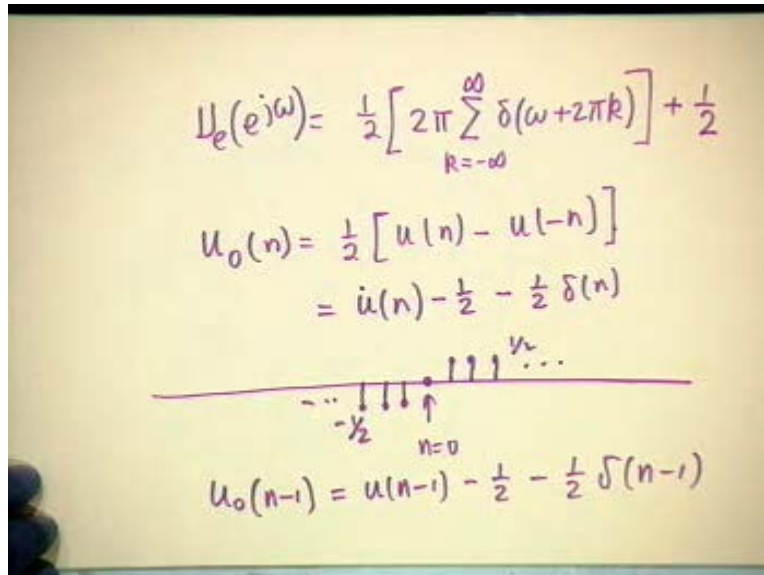 U_e(e^{jω}) = 1/2 [2π ∑_{k=-∞}^{∞} δ(ω+2πk)] + 1/2
u_0(n) = 1/2 [u(n) - u(-n)]
= u(n) - 1/2 - 1/2 δ(n)
1/2
... ...
-1/2
n=0
u_0(n-1) = u(n-1) - 1/2 - 1/2 δ(n-1)